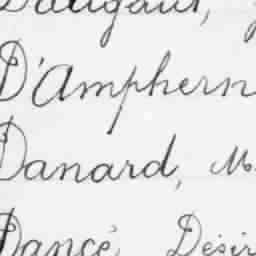 D'Amphern
Danard, M.
Dancé, Désir